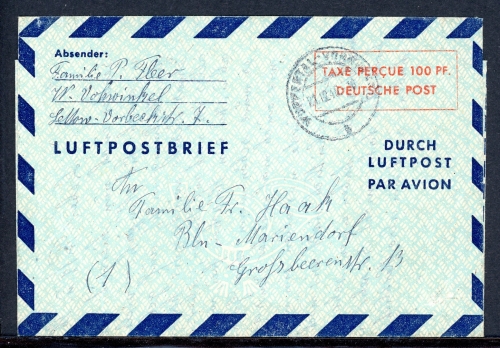 Absender:
Familie P. Eber
W- Vohwinkel
Lettow-Vorbeckstr. 7.
LUFTPOSTBRIEF
TAXE PERÇUE 100 PF.
DEUTSCHE POST
WUPPERTAL-VOHW
b
DURCH
LUFTPOST
PAR AVION
An
Familie Fr. Haak
Bln- Mariendorf
(1) Großbeerenstr. 13